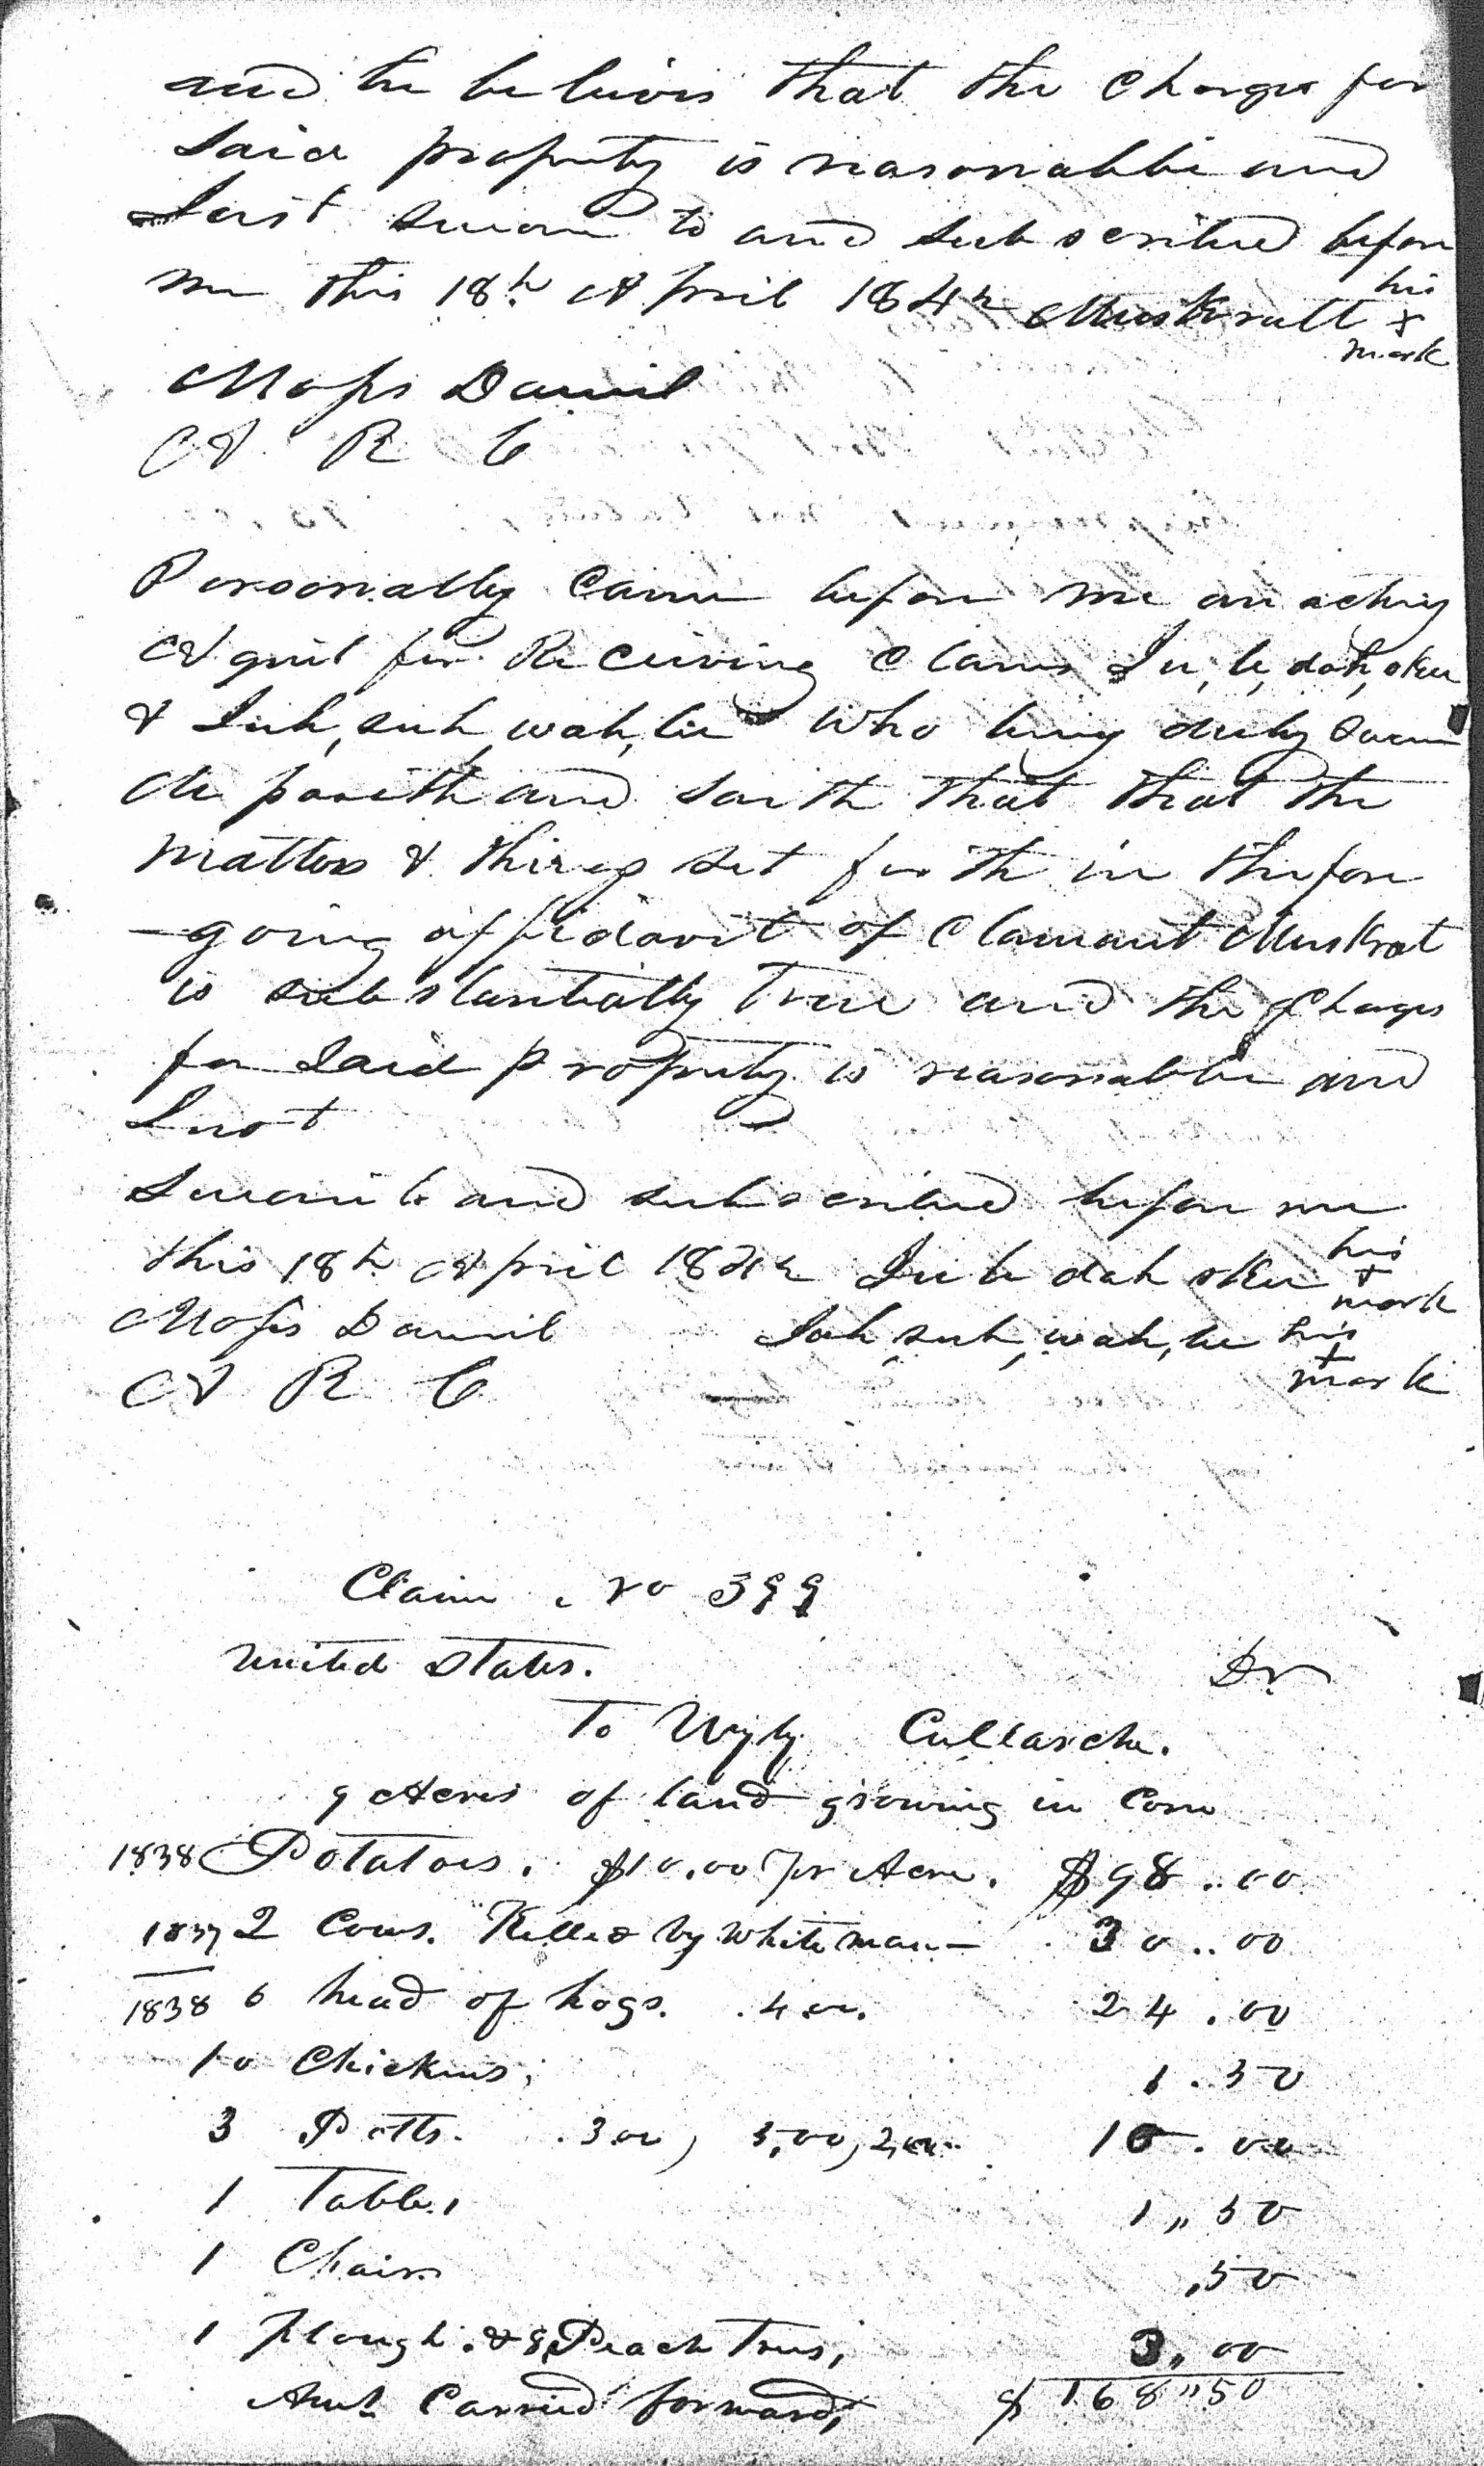 and he believes that the charges for
said property is reasonable and
Just sworn to and subscribed before
me this 18th April 1842 Muskratt his x mark
Moses Daniel
A R C
Personally came before me an acting
Agent for Receiving Claims Ju, le, dah, skee
& Suh, suh, wah, lee who being duly sworn
deposeth and saith that that the
matters & things set forth in the fore
-going affidavit of Clamant Muskrat
is substantially True and the Charges
for said property is reasonable and
Just
Sworn to and subscribed before me
this 18th April 1842 Ju le dah skee his x mark
Moses Daniel Suh, suh, wah, lee his + mark
A R C
Claim No 399
United States. Dr
To Wyly Cullasche.
9 Acres of land growing in Corn
1838 Potatoes. $10.00 Pr Acre. $98..00
1837 2 Cows. Killed by white man— 30..00
1838 6 head of hogs. .4.00. 24.00
10 Chickens, 1.50
3 Potts. .3.00, 5,00, 2,00.. 10.00
1 Table, 1,,50
1 Chair ,50
1 Plough. & 8, Peach Trees, 3,,00
Amt. Carried forward, $168,,50